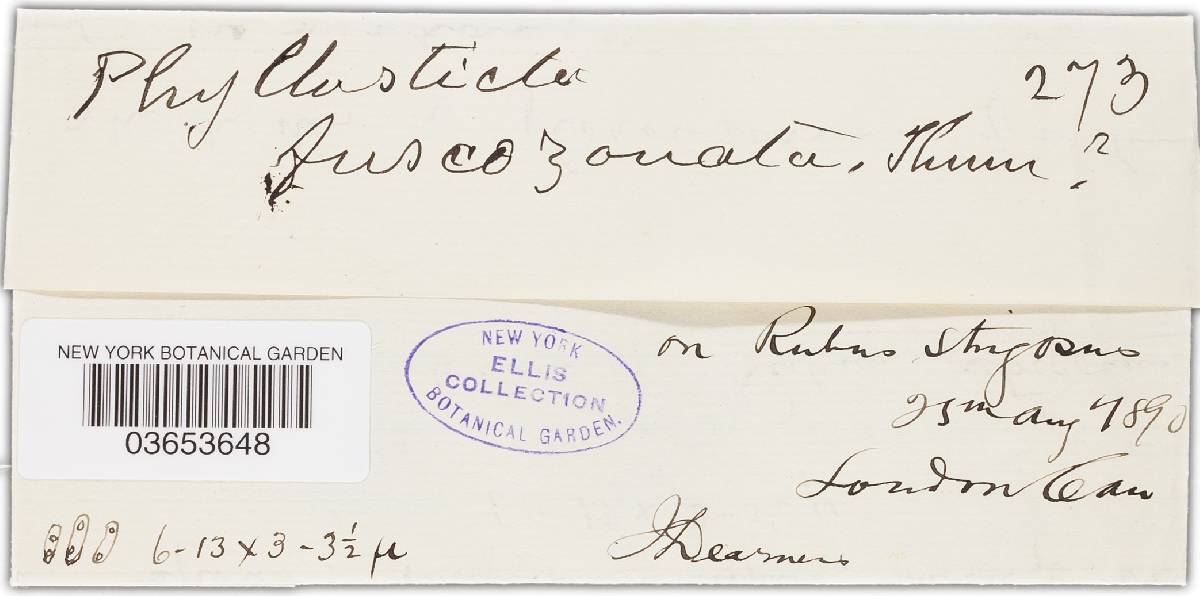 Phyllosticta 273
fuscozonata. Thum ?
NEW YORK BOTANICAL GARDEN
03653648
NEW YORK
ELLIS
COLLECTION
BOTANICAL GARDEN.
on Rubus strigosus
25th Aug 1890
London Can
JDearness
6-13 x 3-3½ µ